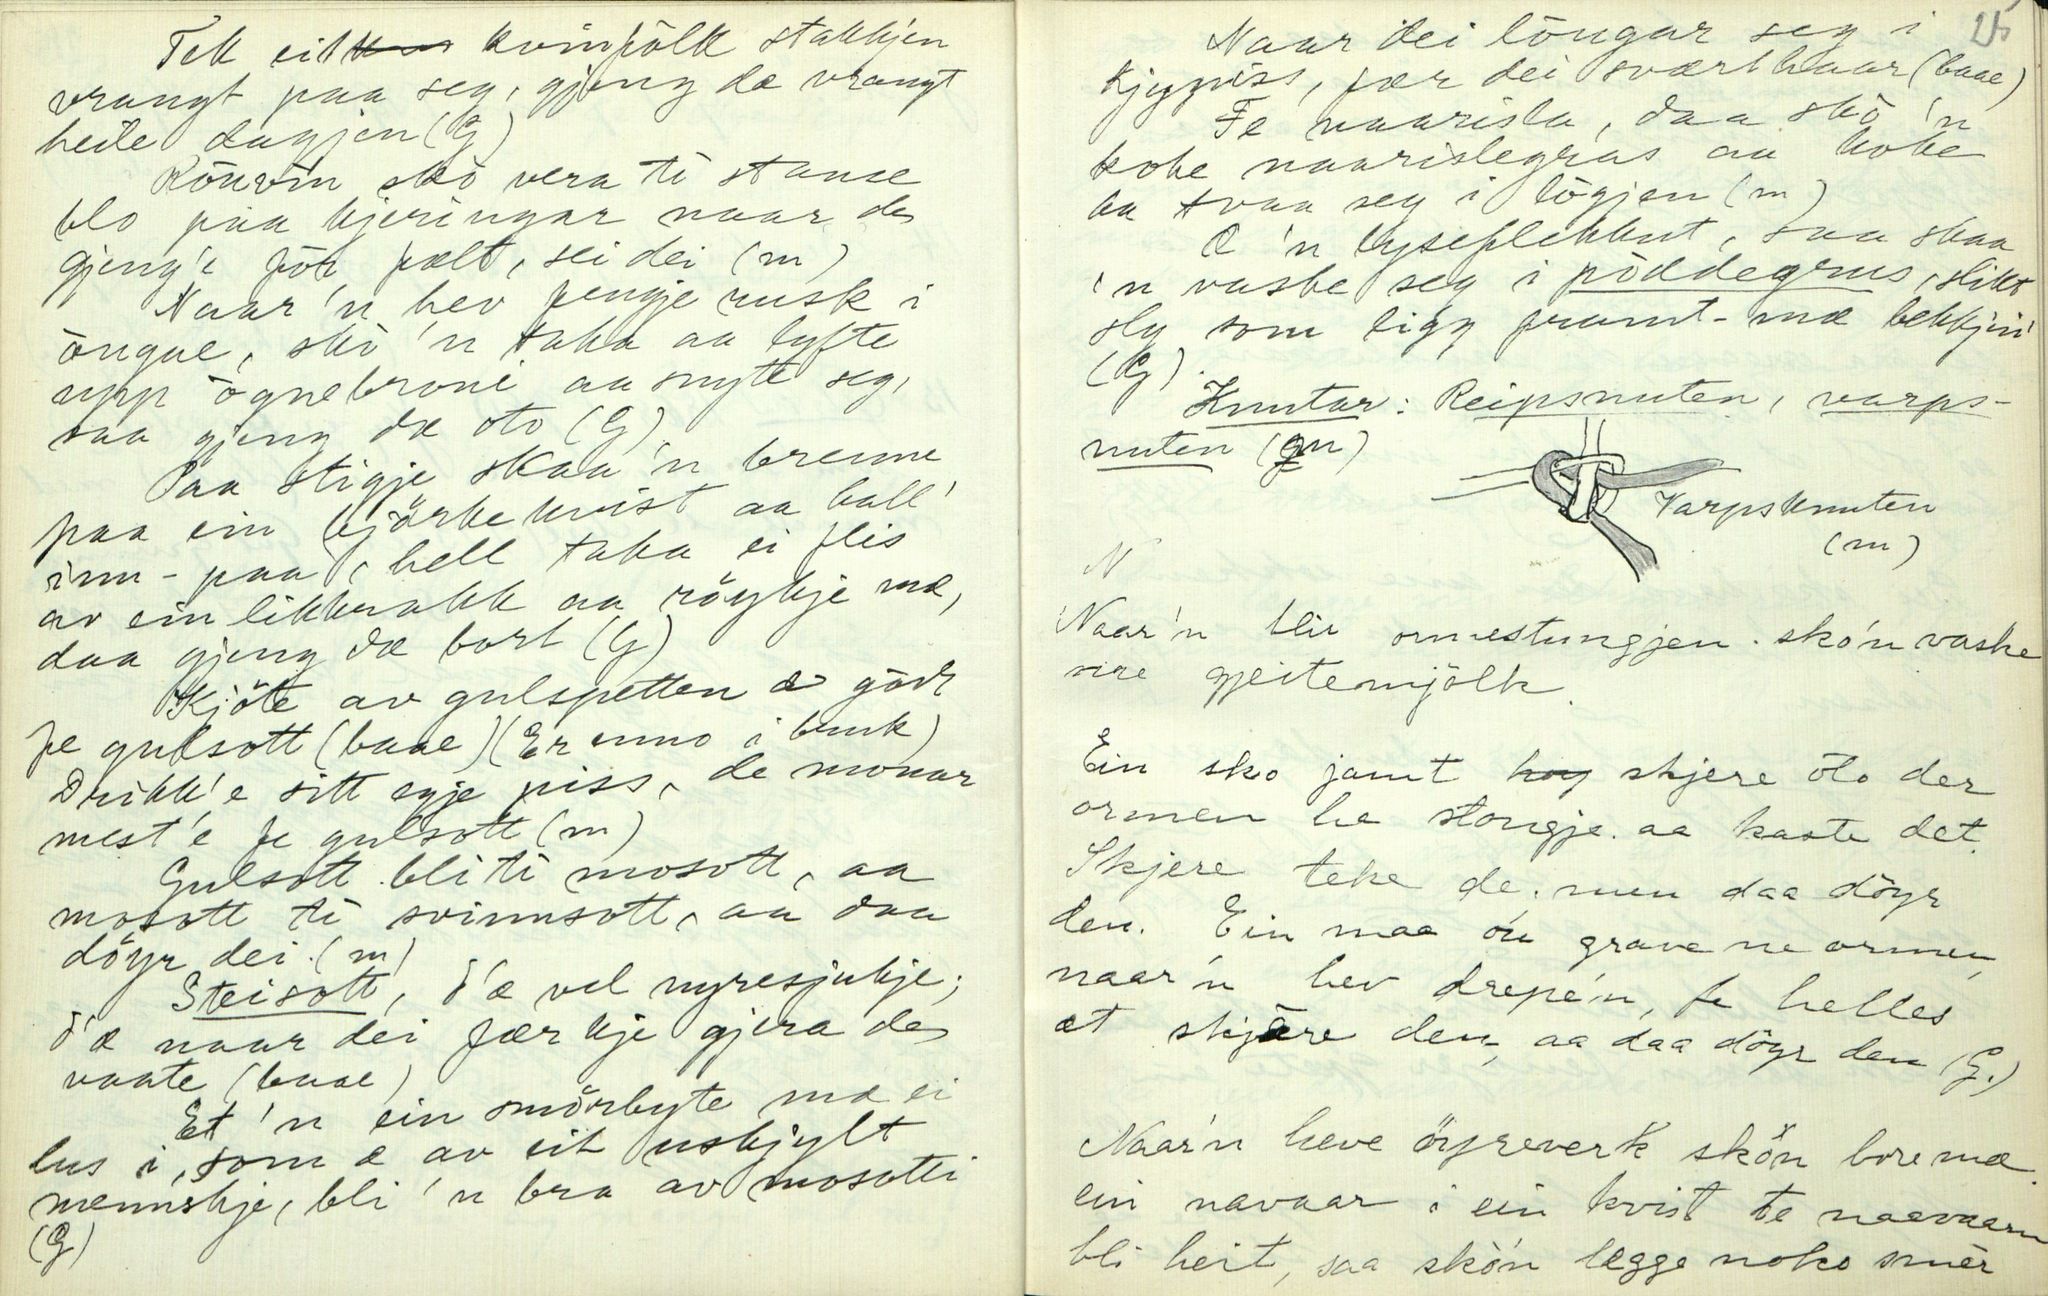 Tek eit kvinfôlk stakkjen
vrangt paa seg, gjeng dæ vrangt
heile dagjen (G)
Kônvin skô vera ti stanse
blo paa kjeringar naar de
gjeng'e fôr fælt, sei dei (m)
Naar'n hev fengje rusk i
ôngae, skô'n taka aa lyfte
upp ôgnebroni aa snyte seg,
saa gjeng dæ oto (G)
Paa stigje skaa'n brenne
paa ein bjørkekvist aa hall'
inn-paa, hell taka ei flis
av ein likkrakk aa röykje mæ,
daa gjeng dæ bort (G)
Kjöte av gulspetten æ gôdt
fe gulsott (baae) (Er enno i bruk)
Drikk'e sitt egje piss, de monar
mest'e fe gulsott (m)
Gulsott bli ti mosott, aa
mosott ti svinnsott, aa daa
döyr dei. (m)
Steisott, d'æ vel nyresjukje;
d'æ naar dei fær kje gjera de
vaate (baae)
Et'n ein smörbyte mæ ei
lus i, som æ av eit uskjylt
mennskje, bli'n bra av mosotti
(G)
25
Naar dei lôugar seg i
kjyrpiss, fær dei svært haar (baae)
Fe naarisla, daa skô'n
koke naarislegras aa koke
aa tvaa seg i lôgjen (m)
Æ'n lyseflekkut, saa skaa
'n vaske seg i pôddegrus, slikt
sly som ligg framt-mæ bekkjin'
(G).
Knutar: Reipsnuten, varps-
nuten (gm)
Varpsknuten
(m)
N
Naar'n blir ormestungjen. sko'n vaske
sire gjeitemjölk.
Ein sko jamt hog skjere ôto der
ormen he stongje. aa kaste det.
Skjere teke de, men daa döyr
den. Ein maa ôu grave ne ormen,
naar'n hev drepe'n, fe helles
æt skjære den, aa daa döyr den (G.)
Naar'n heve öyreverk skô'n bore mæ
ein navaar i ein kvist te naavaarn
bli heit, saa skô'n lægge noko smér